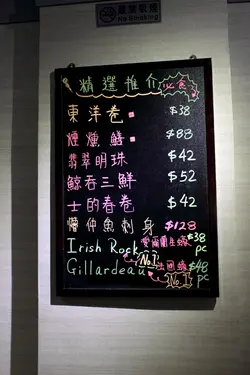 嚴禁吸煙
No Smoking
精選推介 必食
東洋卷 $38
煙燻鱔 $88
翡翠明珠 $42
鯨吞三鮮 $52
士的春卷 $42
仲魚刺身 $128
Irish Rock 愛爾蘭生蠔 $38 pc
No.1
Gillardeau 法國蠔 $48 pc
No.1